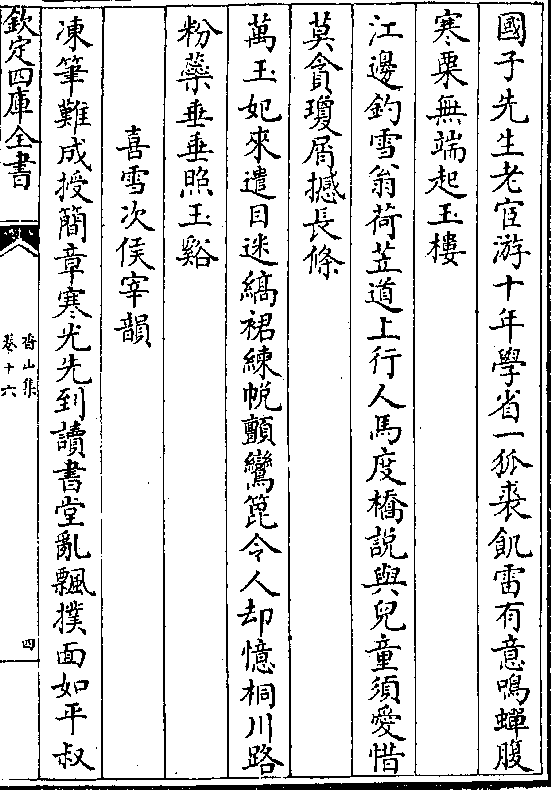 國子先生老宦游十年學省一狐裘飢雷有意鳴蟬腹
寒粟無端起玉樓
江邊釣雪翁荷笠道上行人馬度橋説與兒童須愛惜
莫貪瓊屑撼長條
萬玉妃來遣目迷縞裙練帨顫鸞篦令人却憶桐川路
粉蘂垂垂照玉谿
喜雪次侯宰韻
凍筆難成授簡章寒光先到讀書堂亂飄撲面如平叔
欽定四庫全書
香山集
卷十六
四